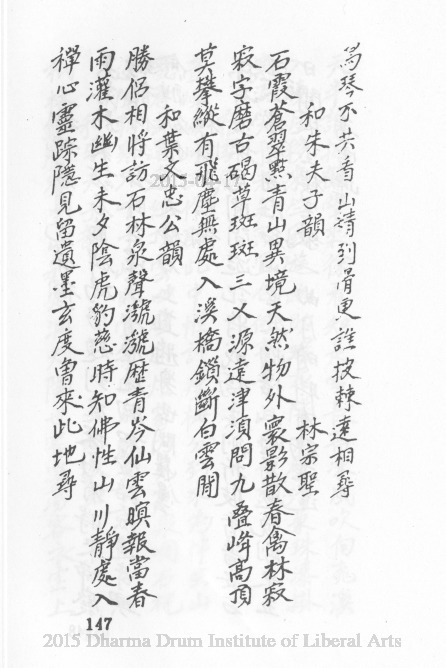 為琴不共看山請到骨更誰按棘遠相尋
和朱夫子韻 林宗聖
石霞蒼翠點青山異境天然物外寰影散春禽林寂
寂字磨古碣草斑斑三乂源遠津須問九疊峰高頂
莫攀縱有飛塵無處入溪橋鎖斷白雲閒
和葉文忠公韻
勝侶相將訪石林泉聲㶁㶁歷青岑仙雲暝報當春
雨灌木幽生未夕陰虎豹慈時知佛性山川靜處入
禪心靈踪隱見留遺墨玄度曾來此地尋
147
2015 Dharma Drum Institute of Liberal Arts